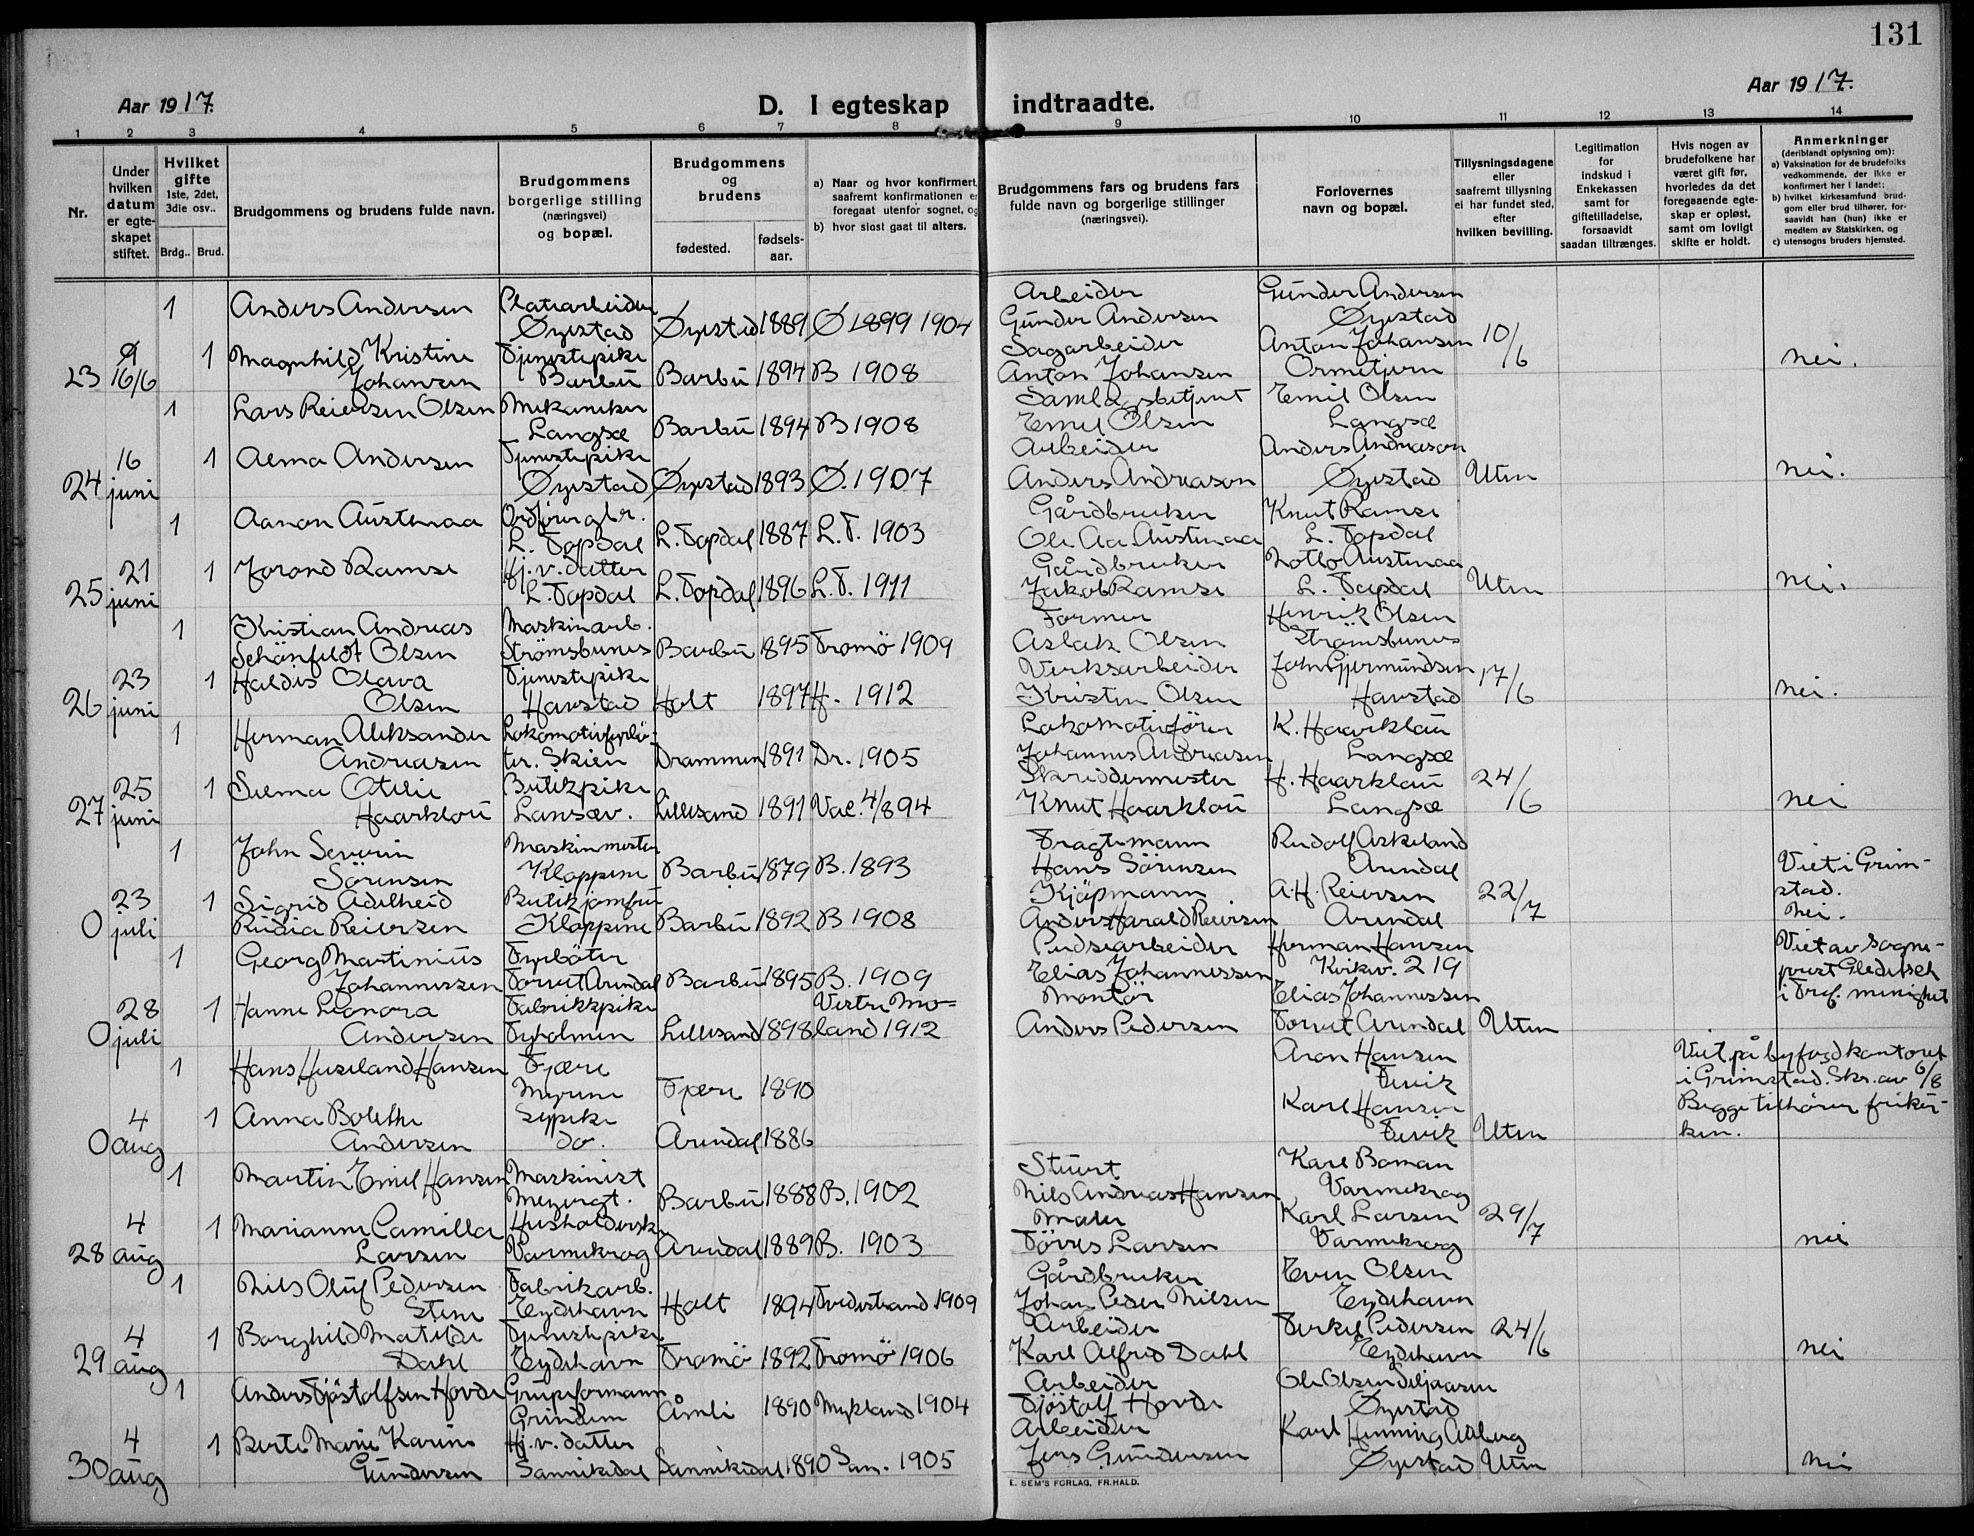 131
Aar 1917.
D. I egteskap indtraadte.
Aar 1917.
1 2 3 4 5 6 7 8 9 10 11 12 13 14
Nr.
Under hvilken datum er egteskapet stiftet.
Hvilket gifte 1ste, 2det, 3die osv..
Brdg.. Brud.
Brudgommens og brudens fulde navn.
Brudgommens borgerlige stilling (næringsvei) og bopæl.
Brudgommens og brudens
fødested.
fødsels-aar.
a) Naar og hvor konfirmert, saafremt konfirmationen er foregaat utenfor sognet, og
b) hvor sidst gaat til alters.
Brudgommens fars og brudens fars fulde navn og borgerlige stillinger (næringsvei).
Forlovernes navn og bopæl.
Tillysningsdagene eller saafremt tillysning ei har fundet sted, efter hvilken bevilling.
Legitimation for indskud i Enkekassen samt for giftetilladelse, forsaavidt saadan tiltrænges.
Hvis nogen av brudefolkene har været gift før, hvorledes da det foregaaende egteskap er opløst, samt om lovligt skifte er holdt.
Anmerkninger (deriblandt oplysning om):
a) Vaksination for de brudefolks vedkommende, der ikke er konfirmert her i landet;
b) hvilket kirkesamfund brudgom eller brud tilhører, forsaavidt han (hun) ikke er medlem av Statskirken, og
c) utensogns bruders hjemsted.
1 Anders Andersen Platearbeider Øyestad Øyestad 1889 Ø 1899 1904 Arbeider Gunder Andersen Gunder Andersen Øyestad
23 16/6 1 Magnhild Kristine Johansen Tjenestepike Barbu Barbu 1894 B 1908 Sagarbeider Anton Johansen Anton Johansen Ormetjern 10/6 nei.
1 Lars Reiersen Olsen Mekaniker Langsæ Barbu 1894 B 1908 Samlagsbetjent Emil Olsen Emil Olsen Langsæ
24 16 juni 1 Alma Andersen Tjenestepike Øyestad Øyestad 1893 Ø. 1907 Arbeider Anders Andreason Anders Andreason Øyestad Uten nei.
1 Aanon Austenaa Ordfører gbr. L. Topdal L. Topdal 1887 L.T. 1903 Gårdbruker Ole Aa Austenaa Knut Ramse L. Topdal
25 21 juni 1 Jorond Ramse Hj.v. datter L. Topdal L. Topdal 1896 L.T. 1911 Gårdbruker Jakob Ramse Lotto Austenaa L. Topdal Uten nei.
1 Kristian Andreas Schønfeldt Olsen Maskinarb. Strømsbunes Barbu 1895 Tromø 1909 Former Aslak Olsen Henrik Olsen Strømsbunes
26 23 juni 1 Haldis Olava Olsen Tjenestepike Havstad Holt 1897 H. 1912 Verksarbeider Kristen Olsen John Gjermundsen Havstad 17/6 nei.
1 Herman Aleksander Andreasen Lokomotivfyrbøter. Skien Drammen 1891 Dr. 1905 Lokomotivfører Johannes Andreasen K. Haarklau Langsæ
27 25 juni 1 Selma Otelie Haarklou Butikpike Lansæv. Lillesand 1891 Val. 4/894 Skreddermester Knut Haarklou H. Haarklou Langsæ 24/6 nei
1 John Severin Sørensen Maskinmester Kloppene Barbu 1879 B. 1893 Fragtemann Hans Sørensen Rudolf Askeland Arendal Viet i Grimstad.
0 23 juli 1 Sigrid Adelheid Rudia Reiersen Butikjomfru Kloppene Barbu 1892 B 1908 Kjøpmann Anders Harald Reiersen A.H. Reiersen Arendal 22/7 Nei.
1 Georg Martinius Johannessen Fyrbøter Torvet Arendal Barbu 1895 B. 1909 Pudsearbeider Elias Johannessen Herman Hansen Kvikv. 219 Viet av sogneprest Gleditsch i Tref. menighet
0 28 juli 1 Hanne Leonora Andersen Fabrikkpike Tyholmen Lillesand 1898 Vestre Moland 1912 Montør Anders Pedersen Elias Johannessen Torvet Arendal Uten
1 Hans Huseland Hansen Fjære Myrene Fjære 1890 Aron Hansen Fevik Viet på byfogdkontoret i Grimstad. Skr. av 6/8
0 4 aug 1 Anna Bolethe Andersen Sypike do. Arendal 1886 Karl Hansen Fevik Uten Begge tilhører frikirken.
1 Martin Emil Hansen Maskinist Meyergt. Barbu 1888 B. 1902 Stuert Nils Andreas Hansen Karl Boman Varmekrog
28 4 aug 1 Marianne Camilla Larsen Husholdersk. Varmekrog Arendal 1889 B. 1903 Maler Tørres Larsen Karl Larsen Varmekrog 29/7 nei
1 Nils Oluf Pedersen Stene Fabrikarb. Eydehavn Holt 1894 Tvedestrand 1909 Gårdbruker Johan Peder Nilsen Even Olsen Eydehavn
29 4 aug 1 Borghild Matilde Dahl Tjenestepike Eydehavn Tromø 1892 Tromø 1906 Arbeider Karl Alfred Dahl Terkel Pedersen Eydehavn 24/6 nei
1 Anders Tjøstolfsen Hovde Grubeformann Grindem Åmli 1890 Mykland 1904 Arbeider Tjøstolf Hovde Ole Olsen Øyestad
30 4 aug 1 Berte Marie Karine Gundersen Hj.v. datter Sannikedal Sannikedal 1890 San. 1905 Arbeider Jens Gundersen Karl Henning Øyestad Uten nei
E. SEM'S FORLAG, FR.HALD.